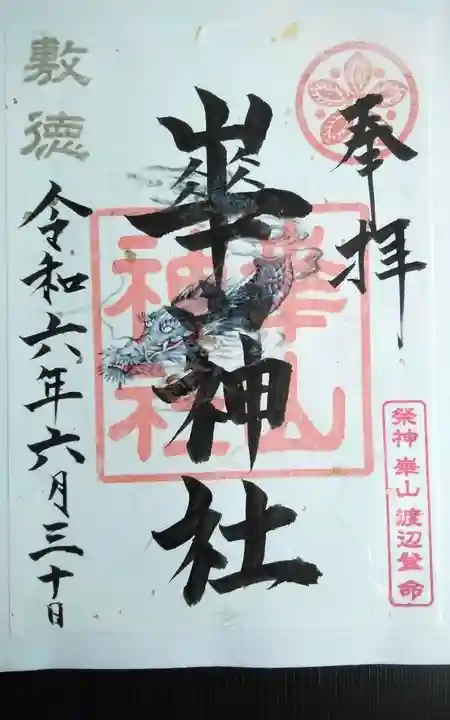 奉拝
祭神 崋山 渡辺登命
崋山神社
崋山
神社
敷徳
令和六年六月三十日